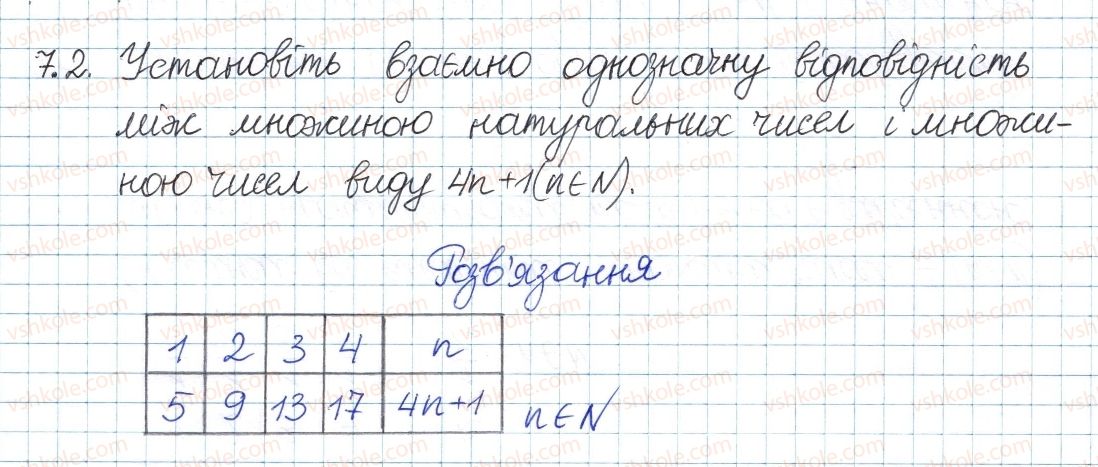 7.2. Установіть взаємно однозначну відповідність
між множиною натуральних чисел і множи-
ною чисел виду 4n+1(n∈N).
Розв'язання
1 2 3 4 n
5 9 13 17 4n+1 n∈N